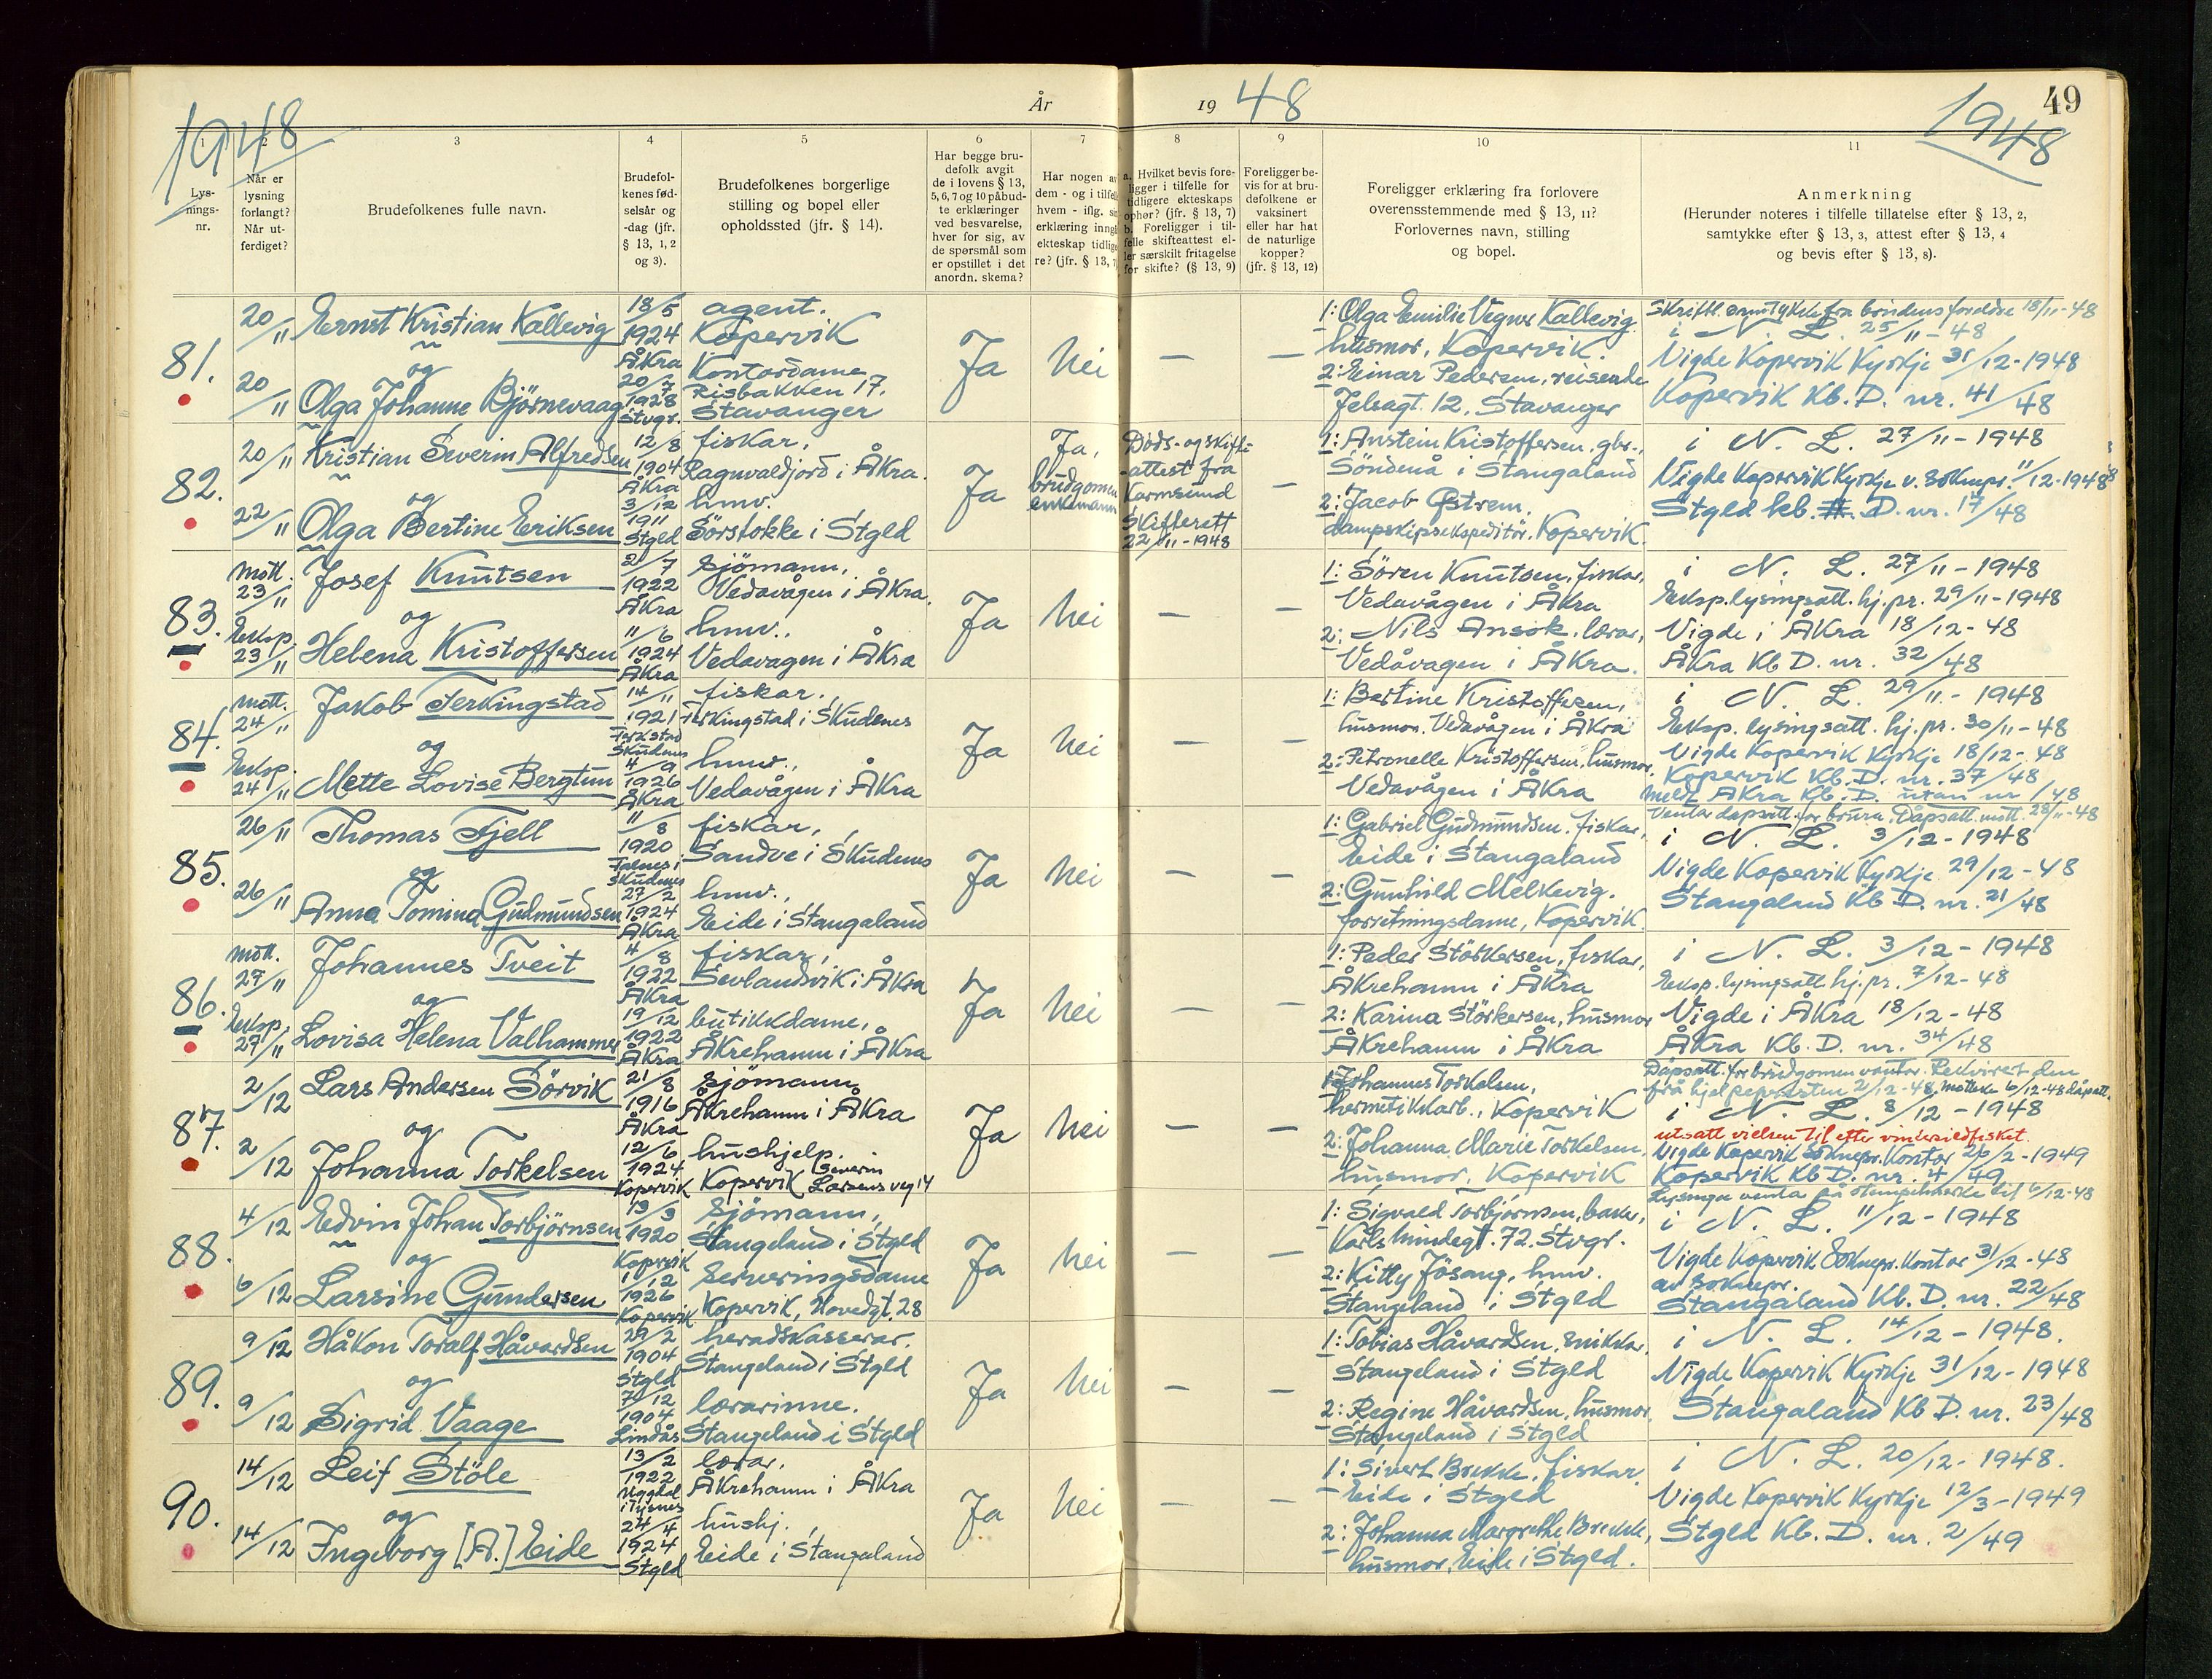 1948
År
19 48
1948
49
1
2
3
4
5
6
7
8
9
10
11
Lys-
nings-
nr.
Når er
lysning
forlangt?
Når ut-
ferdiget?
Brudefolkenes fulle navn.
Brudefol-
kenes fød-
selsår og
-dag (jfr.
§ 13, 1, 2
og 3).
Brudefolkenes borgerlige
stilling og bopel eller
opholdssted (jfr. § 14).
Har begge bru-
defolk avgit
de i lovens § 13,
5, 6, 7 og 10 påbud-
te erklæringer
ved besvarelse,
hver for sig, av
de spørsmål som
er opstillet i det
anordn. skema?
Har nogen av
dem - og i tilfelle
hvem - iflg. sin
erklæring inngå
ekteskap tidlige
re? (jfr. § 13, 7
a. Hvilket bevis fore-
ligger i tilfelle for
tidligere ekteskaps
ophør? (jfr. § 13, 7)
b. Foreligger i til-
felle skifteattest el-
ler særskilt fritagelse
for skifte? (§ 13, 9)
Foreligger be-
vis for at bru-
defolkene er
vaksinert
eller har hat
de naturlige
kopper?
(jfr. § 13, 12)
Foreligger erklæring fra forlovere
overensstemmende med § 13, 11?
Forlovernes navn, stilling
og bopel.
Anmerkning
(Herunder noteres i tilfelle tillatelse efter § 13, 2,
samtykke efter § 13, 3, attest efter § 13, 4
og bevis efter § 13, 8).
81.
20/11
Ernst Kristian Kallevig
og
20/11
Olga Johanne Björnevaag
18/5
1924
ÅKra
20/7
1928
Stvgr.
agent.
Kopervik
Kontordame
Risbakken 17.
Stavanger
Ja
Nei
—
—
1: Olga Emilie Vegner Kallevig
husmor, Kopervik.
2: Einar Pedersen, reisende
Jelsagt. 12. Stavanger
Skriftl. samtykke fra brudens foreldre 18/11-48
i N. L. 25/11-48
Vigde Kopervik Kyrkje 31/12-1948
Kopervik Kb. D. nr. 41/48
82.
20/11
Kristian Severin Alfredsen
og
22/11
Olga Bertine Eriksen
12/8
1904
ÅKra
3/12
1911
Stgld
fiskar,
Ragnvaldjord i ÅKra.
hmv.
Sörstokke i Stgld
Ja
Ja,
brudgomen
enkemann
Döds- og skifte-
-attest fra
Karmsund
Skifterett
22/11-1948
—
1: Anstein Kristoffersen. gbr.,
Söndenå i Stangaland
2: Jacob Östrem.
dampskipsekspeditör. Kopervik.
i N. L. 27/11-1948
Vigde Kopervik Kyrkje v. Soknepr. 11/12-1948
Stgld kb. D. nr. 17/48
83.
Mott.
23/11
Eksp.
23/11
Josef Knutsen
og
Helena Kristoffersen
2/7
1922
ÅKra
11/6
1924
ÅKra
sjömann,
Vedavågen i ÅKra.
hmv.,
Vedavagen i ÅKra
Ja
Nei
—
—
1: Sören Knutsen, fiskar,
Vedavågen i ÅKra
2: Nils Ansok. lærar,
Vedåvagen i ÅKra.
i N. L. 27/11-1948
Eksp. lysingsatt. hj.pr. 29/11-1948
Vigde i ÅKra 18/12-48
ÅKra Kb D. nr. 32/48
84.
Mott.
24/11
Eksp.
24/11
Jakob Ferkingstad
og
Mette Lovise Bergtun
14/11
1921
Ferkstad
Skudenes
4/9
1926
ÅKra
fiskar.,
Ferkingstad i Skudenes
hmv.,
Vedavågen i ÅKra
Ja
Nei
—
—
1: Bertine Kristoffersen,
husmor. Vedavågen i ÅKra
2: Petronelle Kristoffersen. husmor,
Vedavågen i ÅKra
i N. L. 29/11-1948
Eksp. lysingsatt. hj. pr. 30/11-48
Vigde Kopervik Kyrkje 18/12-48
Kopervik Kb. D. nr. 37/48
Meldt ÅKra Kb. D. utan nr /48
85.
26/11
Thomas Fjell
og
26/11
Anna Tomina Gudmundsen
11/8
1920
Falnes i
Skudenes
27/2
1924
ÅKra
fiskar,
Sandve i Skudenes
hmv.,
Eide i Stangaland
Ja
Nei
—
—
1: Gabriel Gudmundsen. fiskar,
Eide i Stangaland
2: Gunhild Melkevig.
forretningsdame, Kopervik.
Ventar dåpsatt. for brura. Dåpsatt. mott. 28/11-48
i N. L. 3/12-1948
Vigde Kopervik Kyrkje. 29/12-48
Stangaland Kb D. nr. 21/48
86.
Mott.
27/11
Eksp.
27/11
Johannes Tveit
og
Lovisa Helena Valhammer
4/8
1922
ÅKra
19/12
1922
ÅKra
fiskar,
Sevlandsvik i ÅKra
butikkdame,
ÅKrehamn i ÅKra
Ja
Nei
—
—
1: Peder Störkersen, fiskar,
ÅKrehamn i ÅKra
2: Karina Störkersen, husmor
ÅKrehamn i ÅKra
i N. L. 3/12-1948
Eksp. lysingsatt hj. pr. 7/12-48
Vigde i ÅKra 18/12-48
ÅKra Kb. D. nr. 34/48
87.
2/12
Lars Andersen Sörvik
og
2/12
Johanna Torkelsen
21/8
1916
ÅKra
12/6
1924
Kopervik
sjömann
ÅKrehamn i ÅKra
hushjelp.
Kopervik Severin
Larsens veg 14
Ja
Nei
—
—
1: Johannes Torkelsen,
hermetikkarb., Kopervik
2: Johanna Marie Torkelsen,
husmor, Kopervik
Dåpsatt. for brudgomen ventar. Rekvirert den
frå hjelpepresten 2/12-48. Mottek. 6/12-48 dåpsatt.
i N. L. 8/12-1948
utsatt vielsen til efter vintersildfisket.
Vigde Kopervik Soknepr. Kontor 26/2-1949
Kopervik Kb D. nr. 4/49
88.
4/12
Edvin Johan Torbjörnsen
og
6/12
Larsine Gundersen
13/3
1920
Kopervik
1/12
1926
Kopervik
sjömann,
Stangeland i Stgld
Serveringsdame
Kopervik, Hovedgt. 28
Ja
Nei
—
—
1: Sigvald Torbjörnsen, baker,
Karls hmindegt. 72. Stvgr.
2: Kitty Jösang, hmv.
Stangeland i Stgld
Lysinga venta på stempelmerke til 6/12-48
i N. L. 11/12-1948
Vigde Kopervik Soknepr. Kontor 31/12-48
av soknepr.
Stangaland Kb. D. nr. 22/48
89.
9/12
Håkon Toralf Håvardsen
og
9/12
Sigrid Vaage
29/2
1904
Stgld
7/12
1904
Lindås
heradskasserar.
Stangeland i Stgld
lærarinne.
Stangeland i Stgld
Ja
Nei
—
—
1: Tobias Håvardsen, snikkar,
Stangeland i Stgld
2: Regine Håvardsen, husmor,
Stangeland i Stgld
i N. L. 14/12-1948.
Vigde Kopervik Kyrkje 31/12-1948
Stangaland Kb D. nr. 23/48
90.
14/12
Leif Stöle
og
14/12
Ingeborg [A.] Eide
13/2
1922
Uggdal
i Tysnes
24/4
1924
Stgld
lærar,
ÅKrehamn i ÅKra
hushj.,
Eide i Stangaland
Ja
Nei
—
—
1: Sivert Brekke, fiskar
Eide i Stgld
2: Johanna Margrethe Brekke,
husmor, Eide i Stgld.
i N. L. 20/12-1948.
Vigde Kopervik Kyrkje 12/3-1949
Stgld Kb. D. nr. 2/49